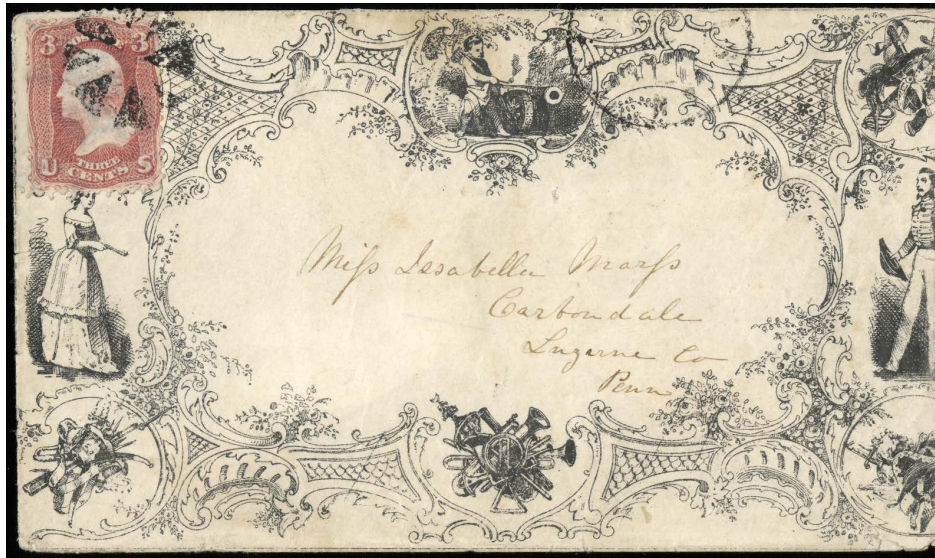 3 3
U S
THREE
CENTS
Miſs Issabella Marſs
Carbondale
Luzerne Co
Penn